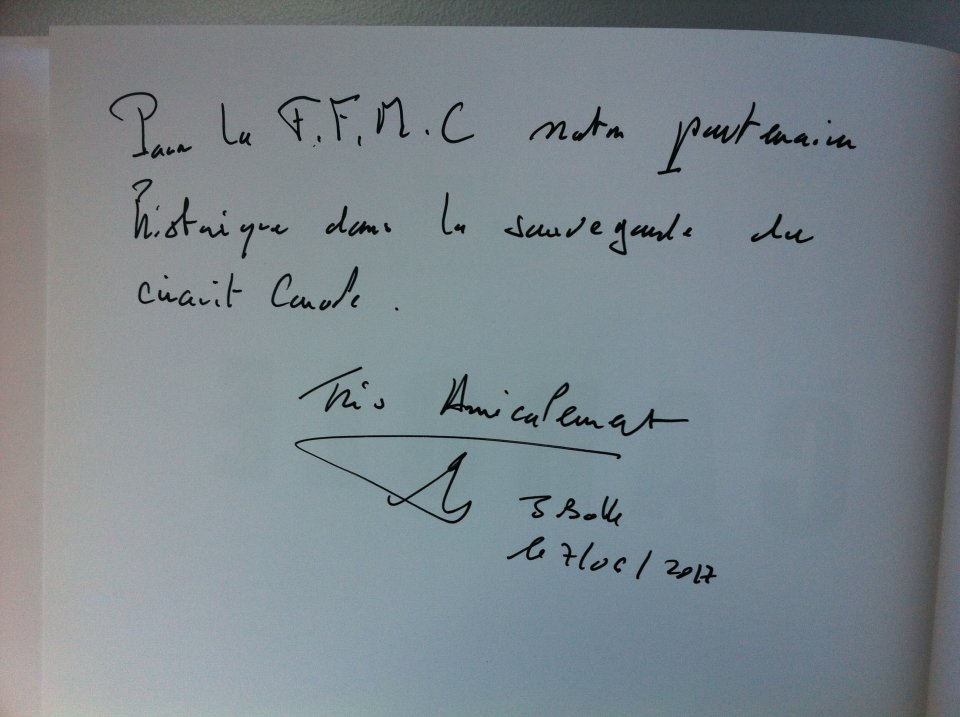 Pour la F.F.M.C notre partenaire
historique dans la sauvegarde du
circuit Carole.
Très Amicalement
le 7/06/2017